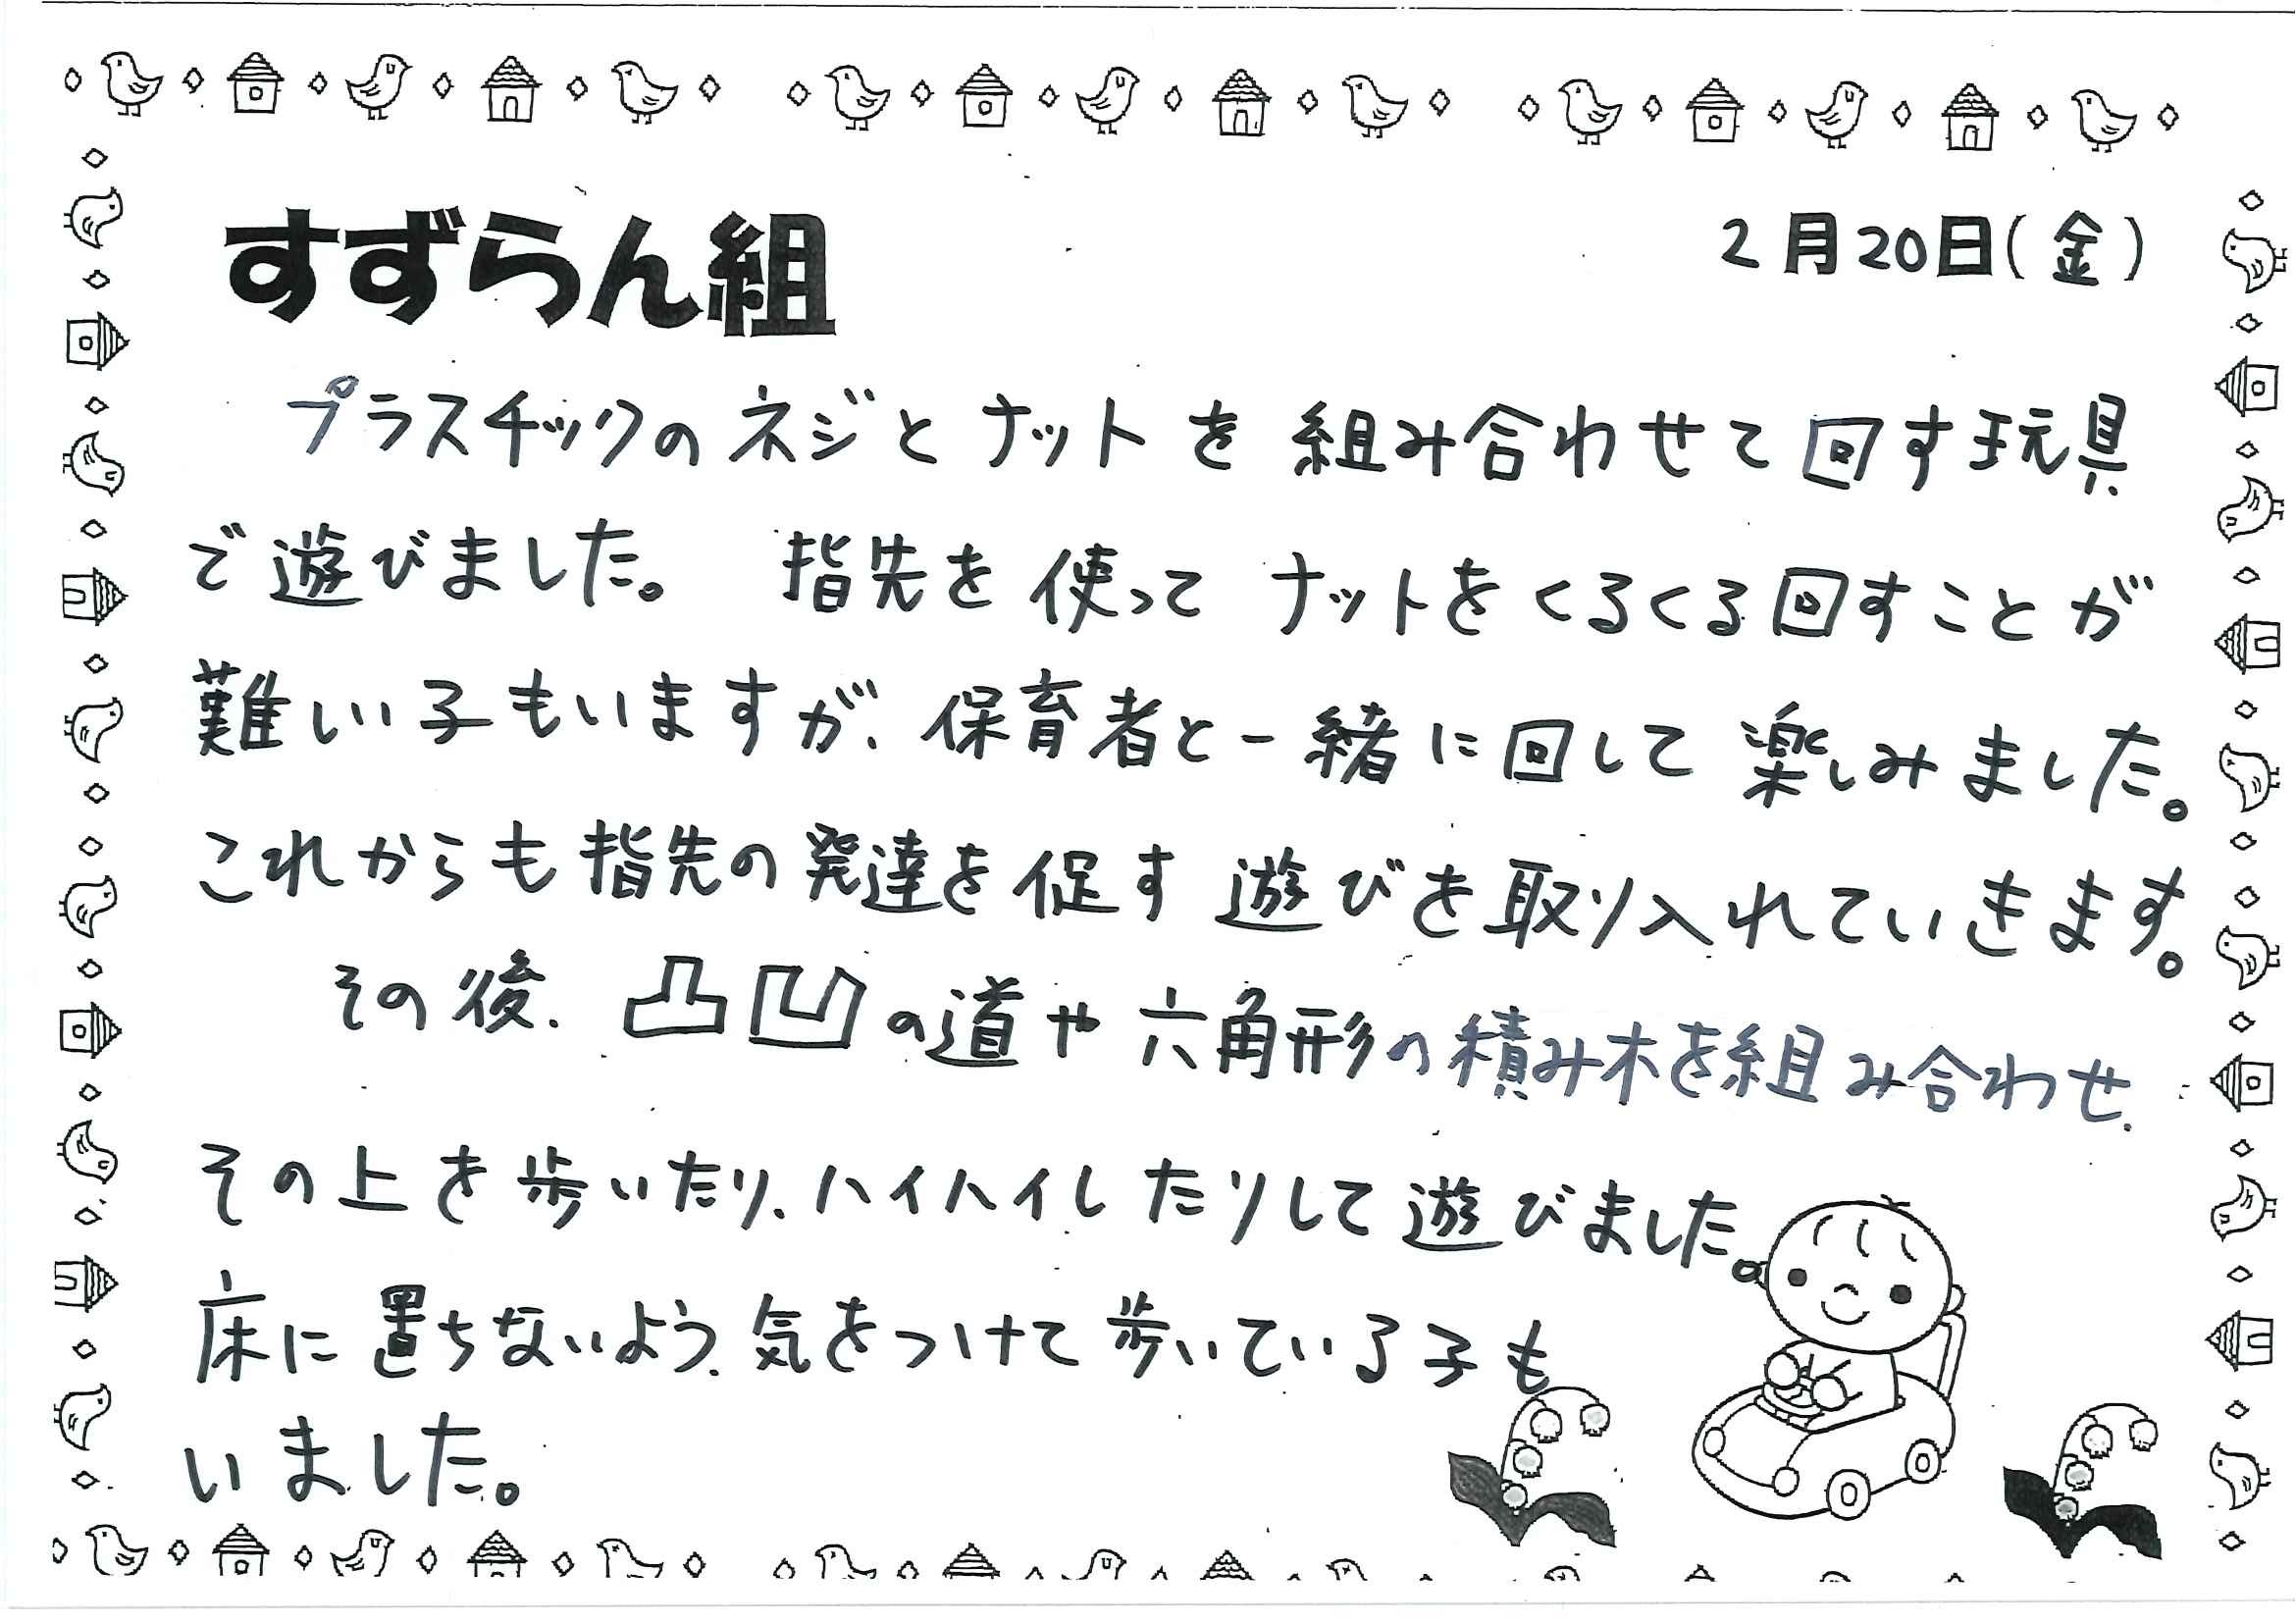 すずらん組
2月20日(金)
プラスチックのネジとナットを組み合わせて回す玩具
で遊びました。指先を使ってナットをくるくる回すことが
難しい子もいますが、保育者と一緒に回して楽しみました。
これからも指先の発達を促す遊びを取り入れていきます。
その後、凸凹の道や六角形の積み木を組み合わせ、
その上を歩いたり、ハイハイしたりして遊びました。
床に置ちないよう、気をつけて歩いている子も
いました。